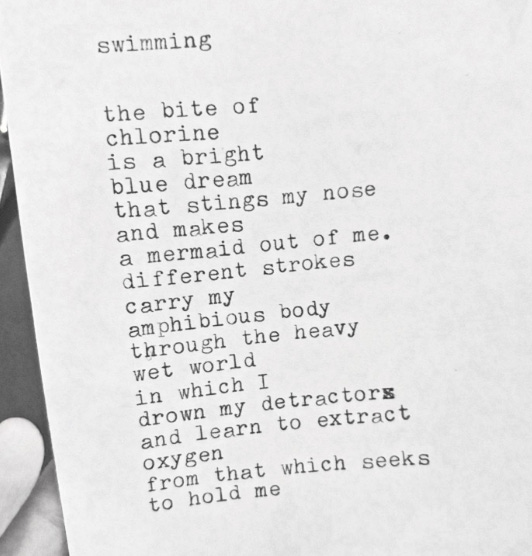 swimming
the bite of
chlorine
is a bright
blue dream
that stings my nose
and makes
a mermaid out of me.
different strokes
carry my
amphibious body
through the heavy
wet world
in which I
drown my detractors
and learn to extract
oxygen
from that which seeks
to hold me